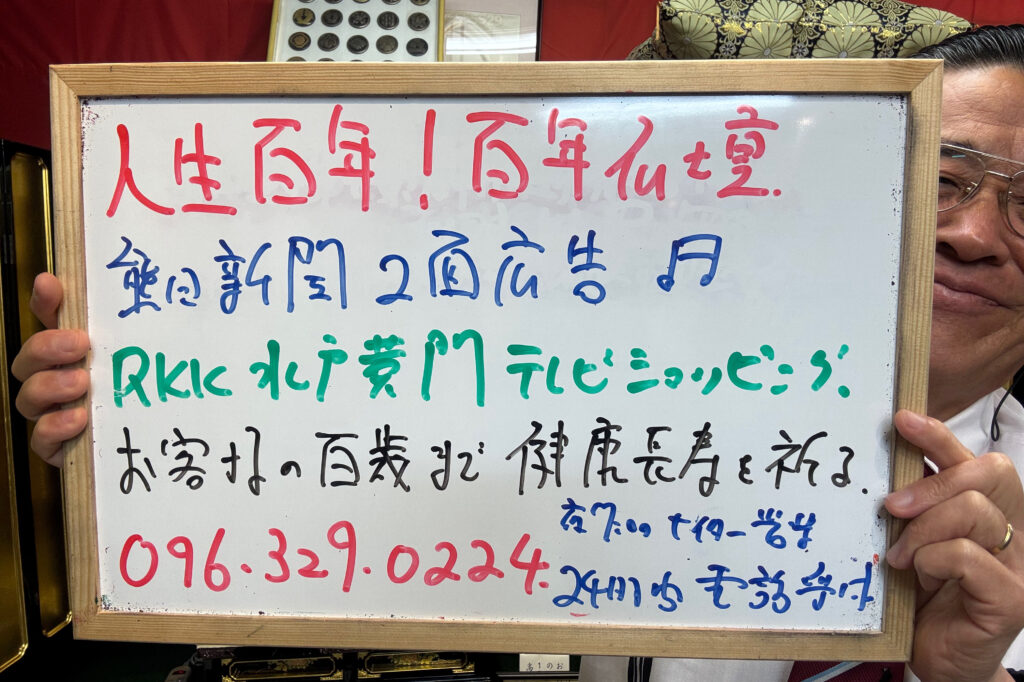 人生百年!百年仏壇.
熊日新聞2面広告 月
RKK水戸黄門テレビショッピング.
お客様の百歳まで健康長寿を祈る.
夜7:00ナイター営業
096.329.0224.
24時間電話受付
高1のお